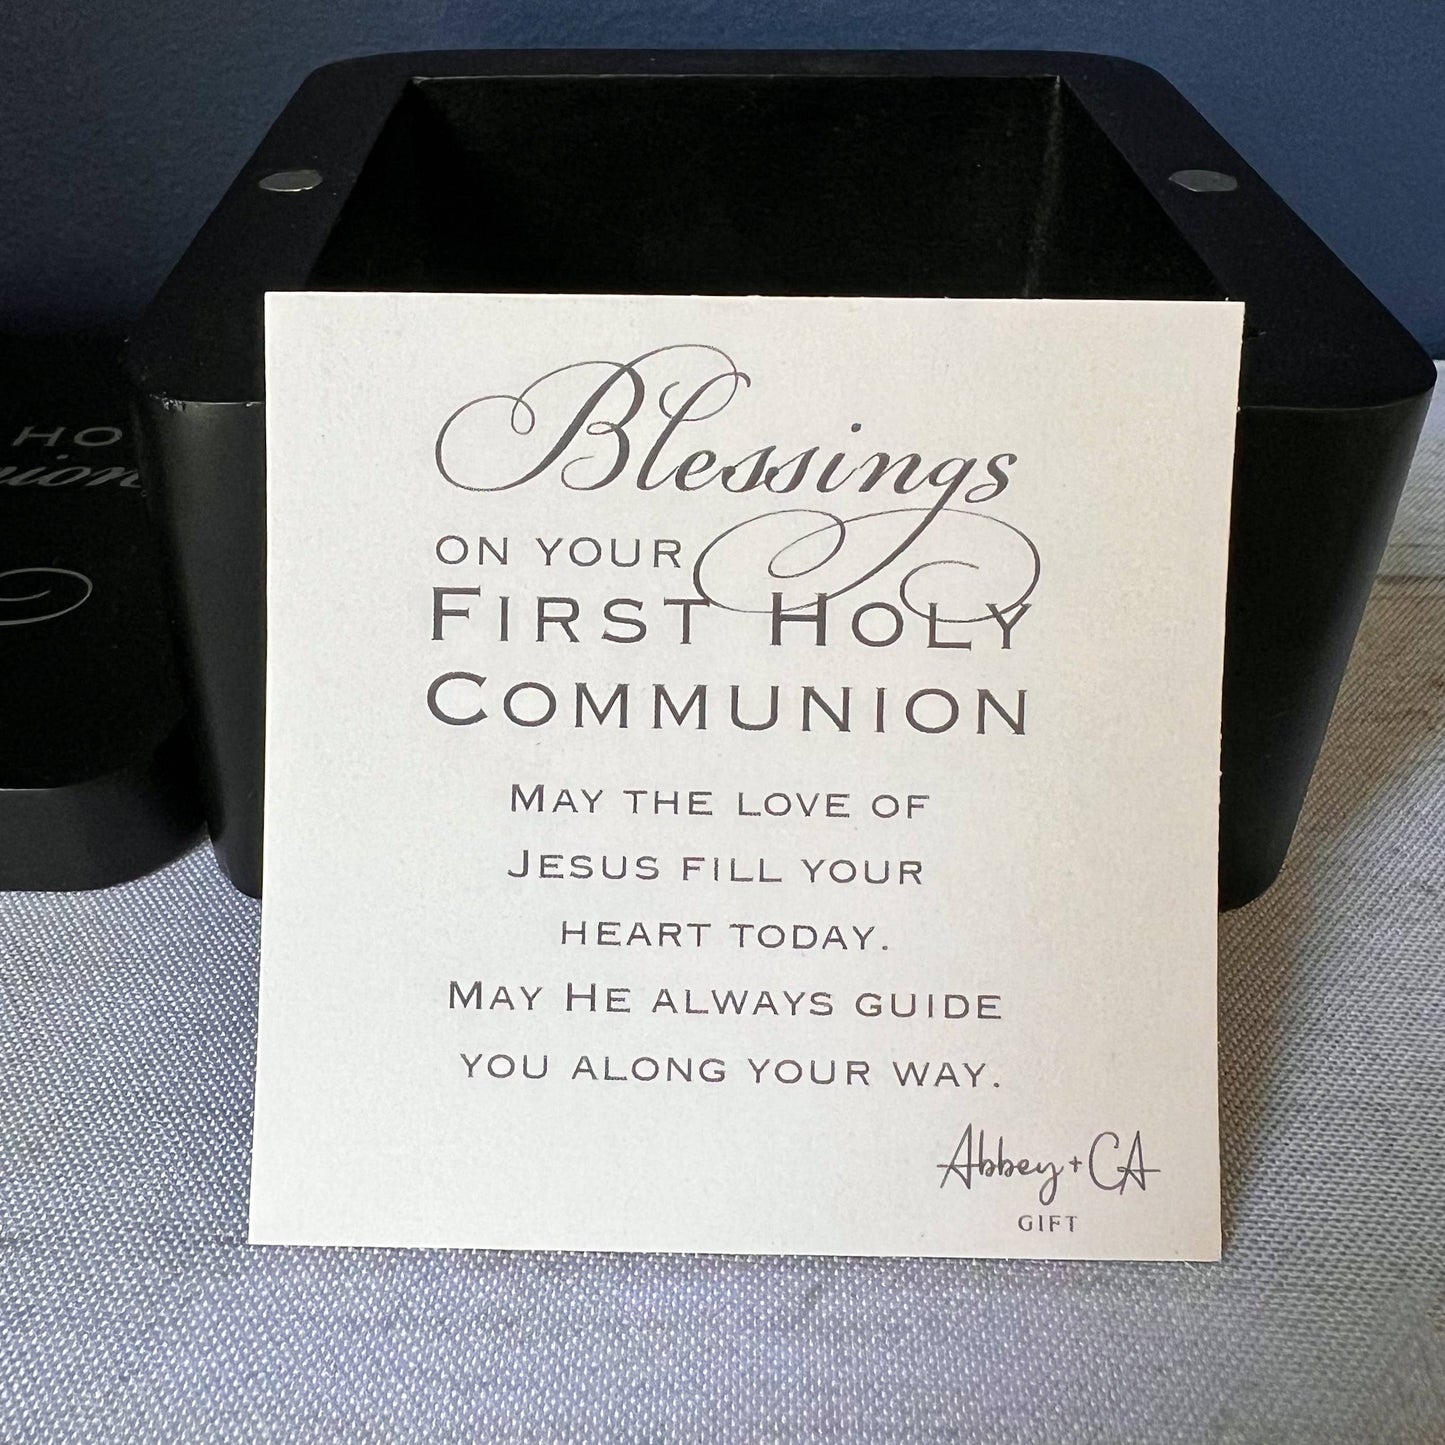 HO
Blessings
ON YOUR
FIRST HOLY
COMMUNION
MAY THE LOVE OF
JESUS FILL YOUR
HEART TODAY.
MAY HE ALWAYS GUIDE
YOU ALONG YOUR WAY.
Abbey + CA
GIFT